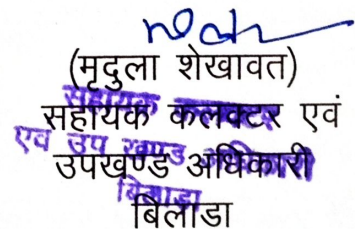 (मृदुला शेखावत)
सहायक कलक्टर एवं
उपखण्ड अधिकारी
बिलाडा
सहायक कलक्टर
एवं उप खण्ड अधिकारी
बिलाडा